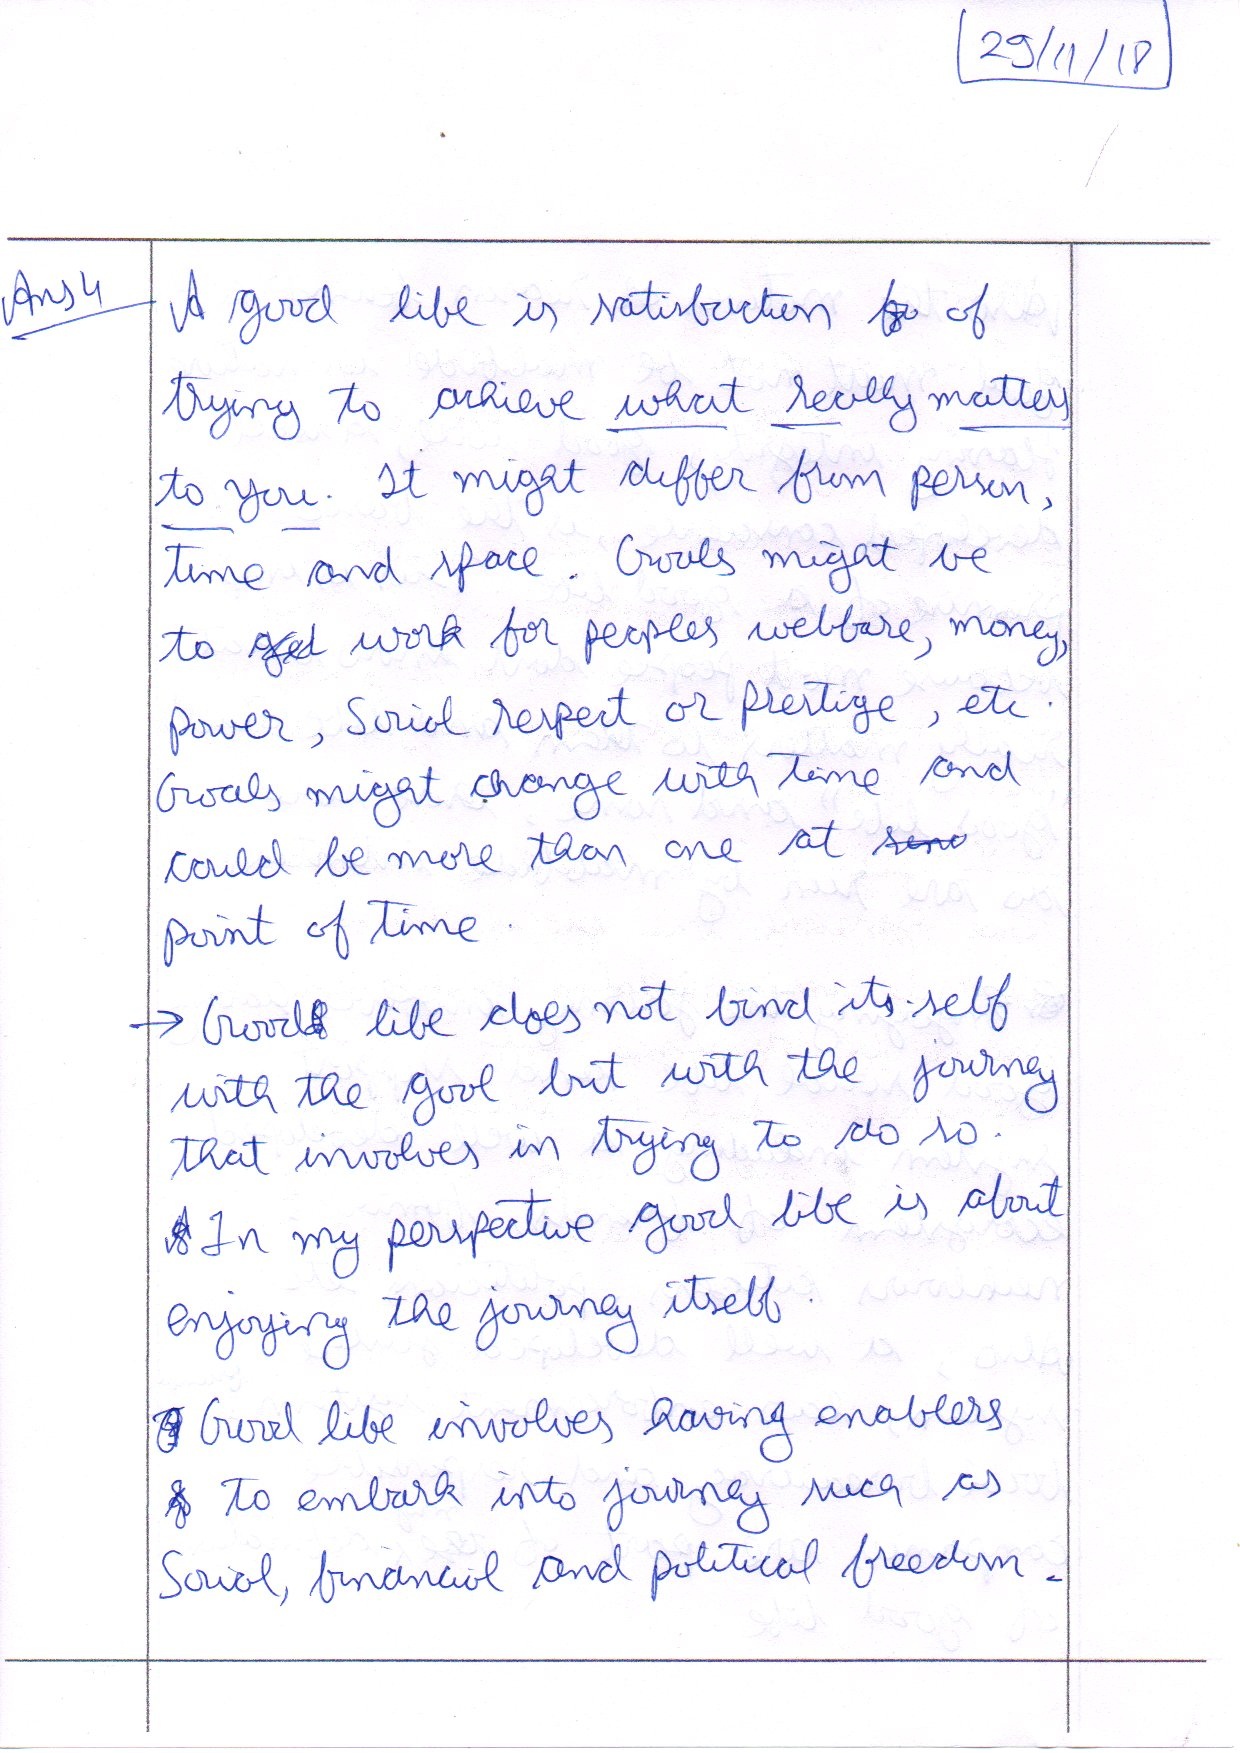 29/11/18
Ans 4
A good life is satisfaction of
trying to achieve what really matters
to you. It might differ from person,
time and space. Goals might be
to work for peoples welfare, money,
power, Social respect or prestige, etc.
Goals might change with time and
could be more than one at
point of time.
→ Good life does not bind its-self
with the goal but with the journey
that involves in trying to do so.
In my perspective good life is about
enjoying the journey itself.
Good life involves having enablers
to embark into journey such as
Social, financial and political freedom.